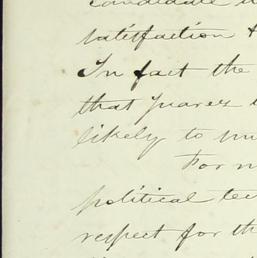 candidate
satisfaction
In fact the
that Juarez
likely to
For
political
respect for the